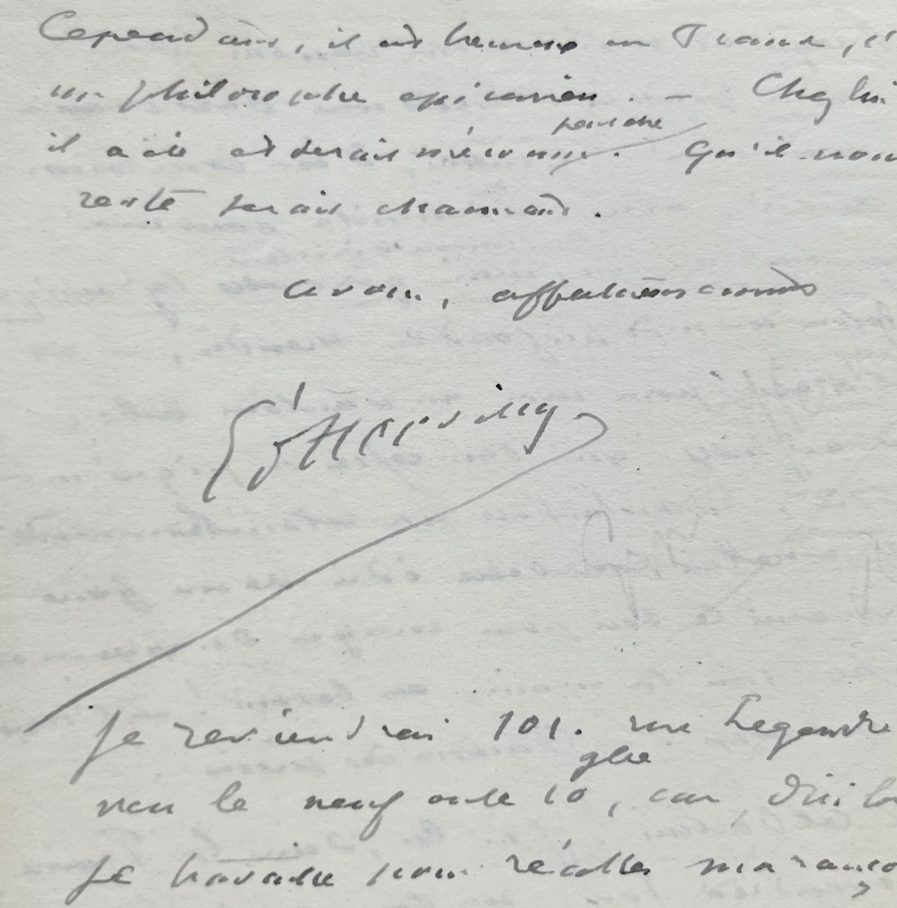 Cependant, il est heureux en France, c'
un philosophe épicurien. — Chez lui
il a été et serait méconnu. Qu'il nous
reste serait charmant.
à vous, affectueusement
Je reviendrai 101. rue Legendre
vers le neuf ou le 10, car d'ici là
je travaille pour récolter ma